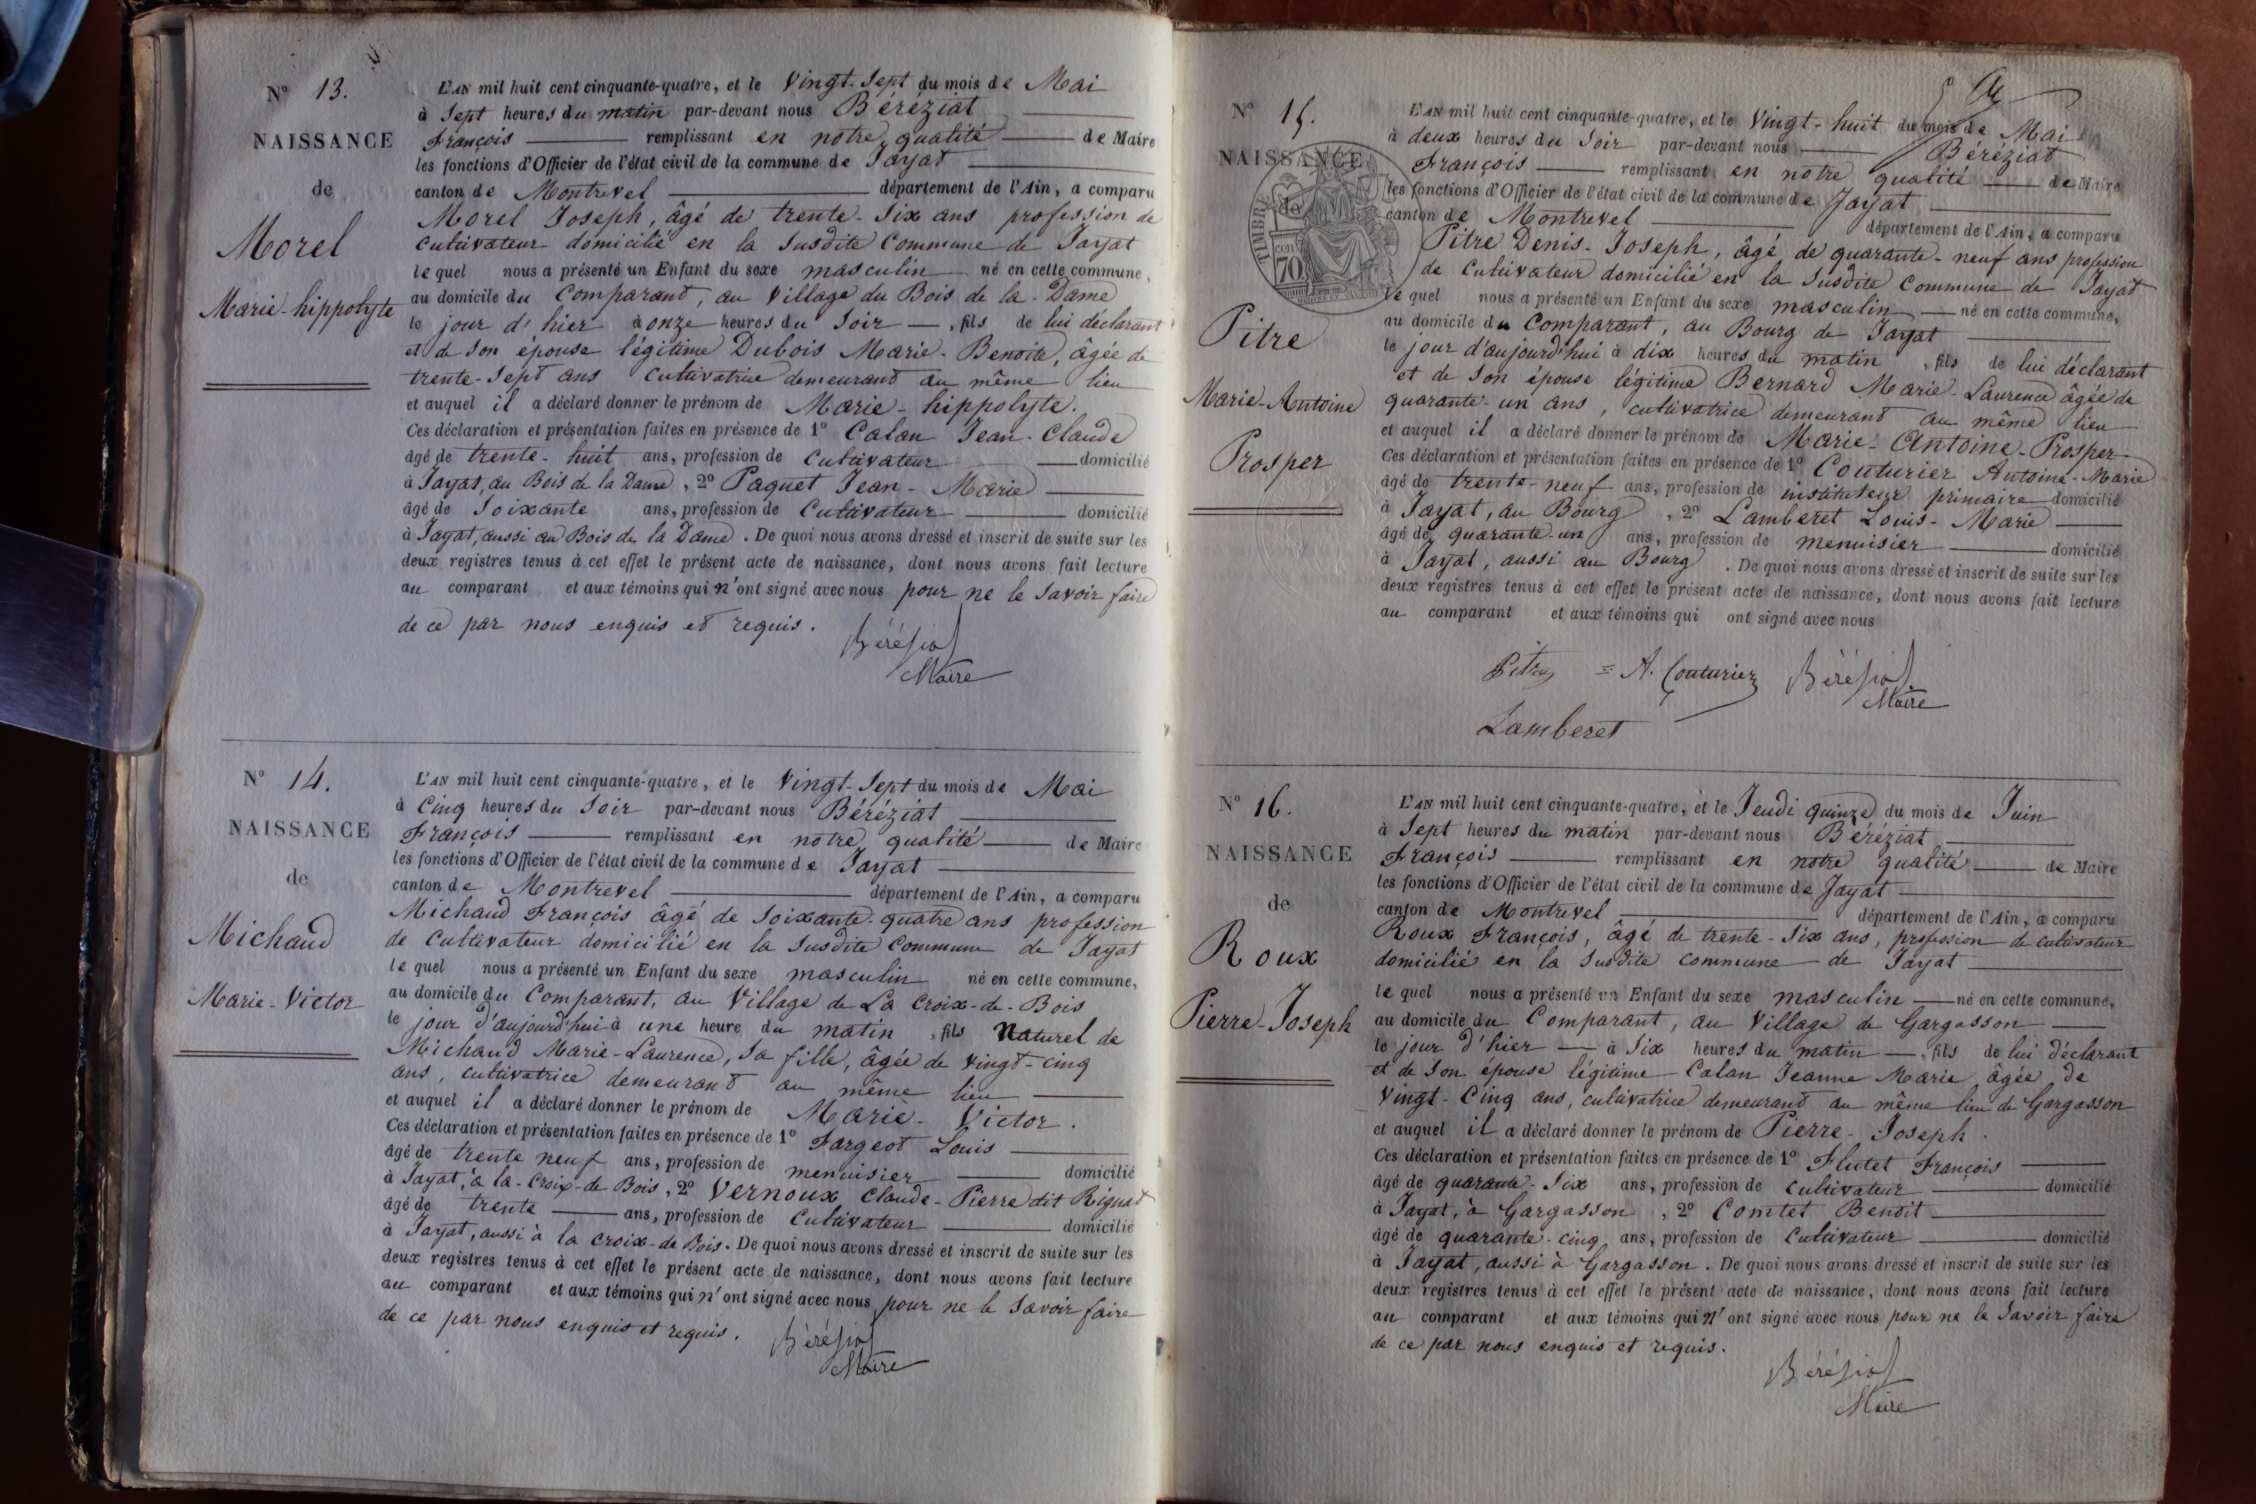 N° 13.
NAISSANCE
de
Morel
Marie-hippolyte
L'AN mil huit cent cinquante-quatre, et le Vingt-Sept du mois de Mai
à Sept heures du matin par-devant nous Béréziat
François remplissant en notre qualité de Maire
les fonctions d'Officier de l'état civil de la commune de Jayat
canton de Montrevel département de l'Ain, a comparu
Morel Joseph, âgé de trente-Six ans profession de
cultivateur domicilié en la Susdite Commune de Jayat
lequel nous a présenté un Enfant du sexe masculin né en cette commune,
au domicile du Comparant, au Village du Bois de la-Dame
le jour d'hier à onze heures du Soir, fils de lui déclarant
et de Son épouse légitime Dubois Marie-Benoite, âgée de
trente-Sept ans cultivatrice demeurant au même lieu
et auquel il a déclaré donner le prénom de Marie-hippolyte.
Ces déclaration et présentation faites en présence de 1° Calan Jean-Claude
âgé de trente-huit ans, profession de Cultivateur domicilié
à Jayat, au Bois de la Dame, 2° Paquet Jean-Marie
âgé de Soixante ans, profession de Cultivateur domicilié
à Jayat, aussi au Bois de la Dame. De quoi nous avons dressé et inscrit de suite sur les
deux registres tenus à cet effet le présent acte de naissance, dont nous avons fait lecture
au comparant et aux témoins qui n'ont signé avec nous pour ne le Savoir faire
de ce par nous enquis et requis.
Béréziat
Maire
N° 14.
NAISSANCE
de
Michaud
Marie-Victor
L'AN mil huit cent cinquante-quatre, et le Vingt-Sept du mois de Mai
à Cinq heures du Soir par-devant nous Béréziat
François remplissant en notre qualité de Maire
les fonctions d'Officier de l'état civil de la commune de Jayat
canton de Montrevel département de l'Ain, a comparu
Michaud François âgé de Soixante-quatre ans profession
de Cultivateur domicilié en la Susdite Commune de Jayat
lequel nous a présenté un Enfant du sexe masculin né en cette commune,
au domicile du Comparant, au Village de La Croix-de-Bois
le jour d'aujourd'hui à une heure du matin, fils Naturel de
Michaud Marie-Laurence, Sa fille, âgée de Vingt-cinq
ans, cultivatrice demeurant au même lieu
et auquel il a déclaré donner le prénom de Marie-Victor.
Ces déclaration et présentation faites en présence de 1° Fargeot Louis
âgé de trente neuf ans, profession de menuisier domicilié
à Jayat, à la-Croix-de Bois, 2° Vernoux Claude-Pierre dit Rignat
âgé de trente ans, profession de Cultivateur domicilié
à Jayat, aussi à la croix-de Bois. De quoi nous avons dressé et inscrit de suite sur les
deux registres tenus à cet effet le présent acte de naissance, dont nous avons fait lecture
au comparant et aux témoins qui n'ont signé avec nous, pour ne le Savoir faire
de ce par nous enquis et requis.
Béréziat
Maire
N° 15.
NAISSANCE
de
TIMBRE
70
Pitre
Marie-Antoine
Prosper
L'AN mil huit cent cinquante-quatre, et le Vingt-huit du mois de Mai
à deux heures du Soir par-devant nous Béréziat
François remplissant en notre qualité de Maire
les fonctions d'Officier de l'état civil de la commune de Jayat
canton de Montrevel département de l'Ain, a comparu
Pitre Denis-Joseph, âgé de quarante-neuf ans profession
de Cultivateur domicilié en la Susdite Commune de Jayat
lequel nous a présenté un Enfant du sexe masculin né en cette commune,
au domicile du Comparant, au Bourg de Jayat
le jour d'aujourd'hui à dix heures du matin, fils de lui déclarant
et de Son épouse légitime Bernard Marie-Laurence âgée de
quarante-un ans, cultivatrice demeurant au même lieu
et auquel il a déclaré donner le prénom de Marie-Antoine-Prosper
Ces déclaration et présentation faites en présence de 1° Couturier Antoine-Marie
âgé de trente-neuf ans, profession de instituteur primaire domicilié
à Jayat, au Bourg, 2° Lamberet Louis-Marie
âgé de quarante-un ans, profession de menuisier domicilié
à Jayat, aussi au Bourg. De quoi nous avons dressé et inscrit de suite sur les
deux registres tenus à cet effet le présent acte de naissance, dont nous avons fait lecture
au comparant et aux témoins qui ont signé avec nous
Pitre = A. Couturier Béréziat
Maire
Lamberet
N° 16.
NAISSANCE
de
Roux
Pierre-Joseph
L'AN mil huit cent cinquante-quatre, et le Jeudi quinze du mois de Juin
à Sept heures du matin par-devant nous Béréziat
François remplissant en notre qualité de Maire
les fonctions d'Officier de l'état civil de la commune de Jayat
canton de Montrevel département de l'Ain, a comparu
Roux François, âgé de trente-Six ans, profession de cultivateur
domicilié en la Susdite commune de Jayat
lequel nous a présenté un Enfant du sexe masculin né en cette commune,
au domicile du Comparant, au Village de Gargasson
le jour d'hier à Six heures du matin, fils de lui déclarant
et de Son épouse légitime Calan Jeanne Marie âgée de
Vingt-Cinq ans, cultivatrice demeurant au même lieu de Gargasson
et auquel il a déclaré donner le prénom de Pierre-Joseph.
Ces déclaration et présentation faites en présence de 1° Flutet François
âgé de quarante-Six ans, profession de cultivateur domicilié
à Jayat, à Gargasson, 2° Comtet Benoit
âgé de quarante-cinq ans, profession de Cultivateur domicilié
à Jayat, aussi à Gargasson. De quoi nous avons dressé et inscrit de suite sur les
deux registres tenus à cet effet le présent acte de naissance, dont nous avons fait lecture
au comparant et aux témoins qui n'ont signé avec nous pour ne le Savoir faire
de ce par nous enquis et requis.
Béréziat
Maire